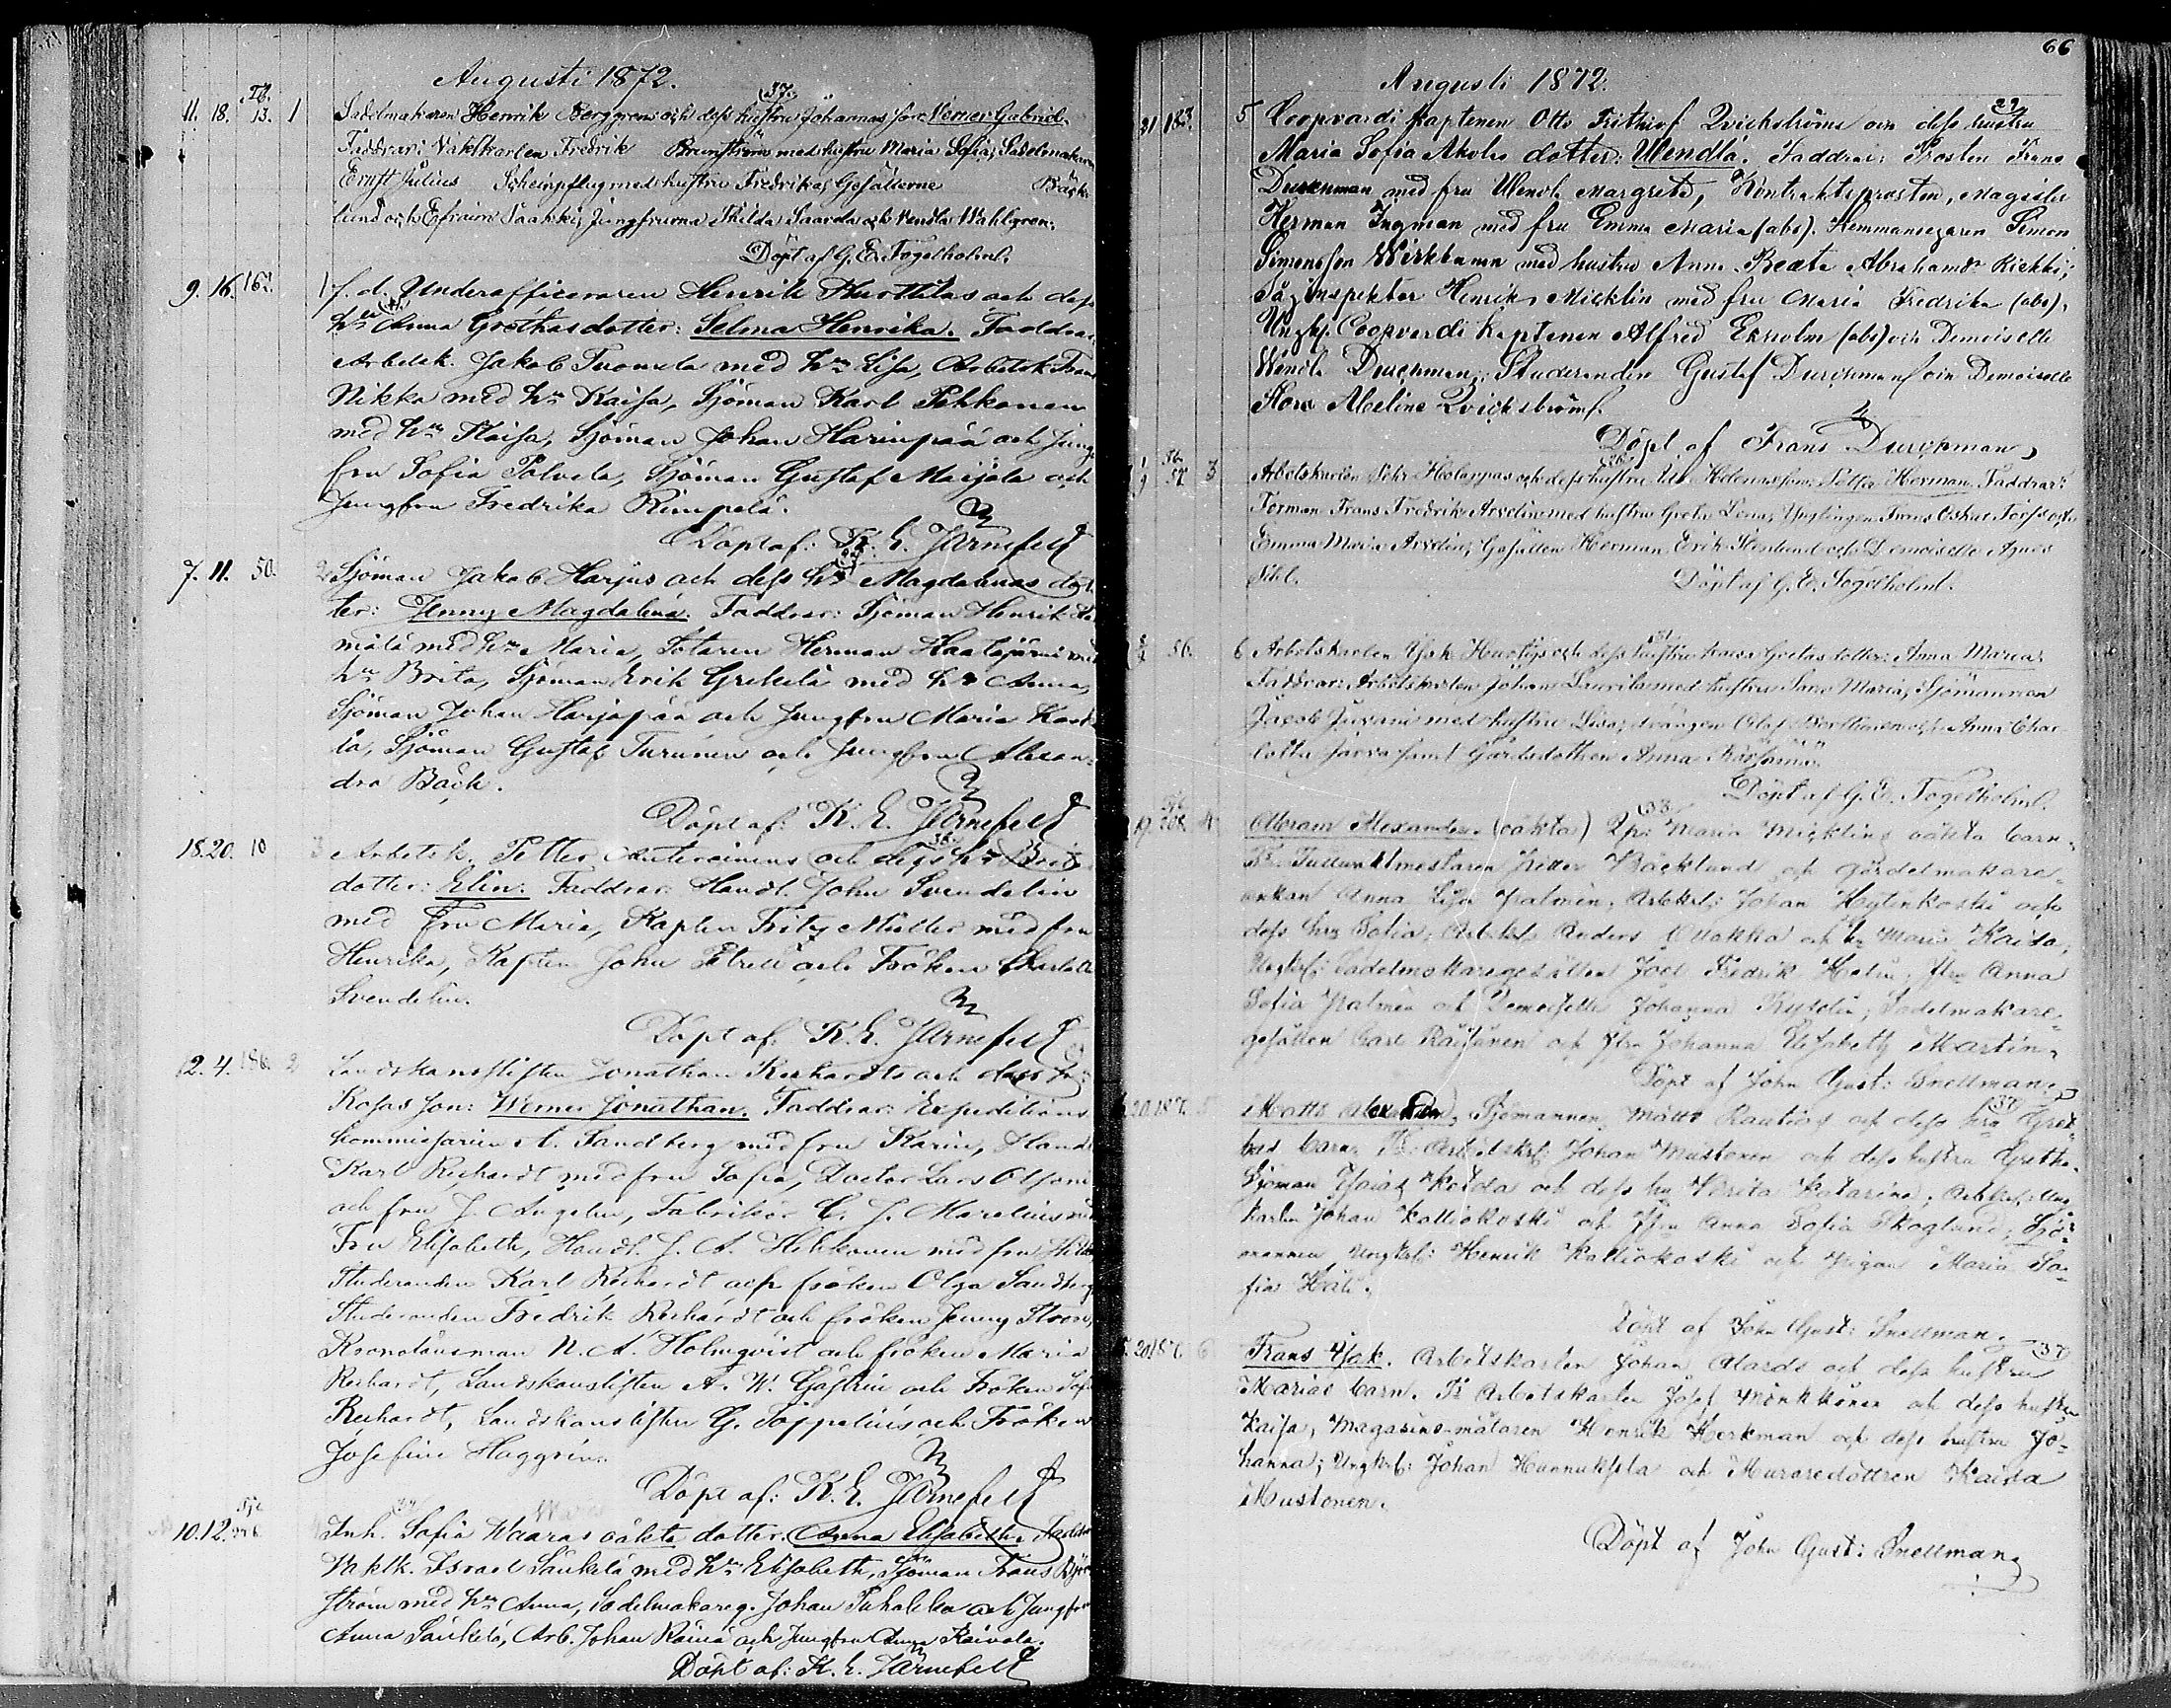 Augusti 1872.
11. 18. 13. 1 Sadelmakaren Henrik Berggrens och dess hustru Johannas son: Verner Gabriel.
Faddrar: Vaktkarlen Fredrik Brunström med hustru Maria Sofia, Sadelmakaren
Ernst Julius Scheinpflug med hustru Fredrika, Gesällerne Bäck-
lund och Efraim Vaakki, Jungfrurna Thilda Saarela och Vendla Wahlgren.
Döpt af G. E. Fogelholm.
9. 16. 162. 1 f. d. Underofficeraren Henrik Huottilas och dess
hru Anna Grethas dotter: Selma Henrika. Faddrar:
Arbetsk. Jakob Tuomela med hru Lisa, Arbetsk. Frans
Nikka med hru Kaisa, Sjöman Karl Pehkonen
med hru Kaisa, Sjöman Johan Harinpää och Jung-
fru Sofia Palvela, Sjöman Gustaf Marjala och
Jungfru Fredrika Rimpelä.
Döpt af: K. E. Järnefelt
7. 11. 50. 2 Sjöman Jakob Harjus och dess hru Magdalenas dot-
ter: Jenny Magdalena. Faddrar: Sjöman Henrik
mälä med hru Maria, Sotaren Herman Haatajärvi med
hru Brita, Sjöman Erik Grekelä med hru Anna,
Sjöman Johan Harjapää och Jungfru Maria
la, Sjöman Gustaf Turunen och Jungfru Alexan-
dra Bäck.
Döpt af: K. E. Järnefelt
18. 20. 10 3 Arbetsk. Petter Anteroinens och dess hru Britas
dotter: Elin. Faddrar: Handl. John Svendelin
med Fru Maria, Kapten Fritz Müller med fru
Henrika, Kapten John Petrell och Fröken Charlotte
Svendelin.
Döpt af: K. E. Järnefelt
2. 4. 186. 2 Landskanslisten Jonathan Reihardts och dess fru
Rosas son: Werner Jonathan. Faddrar: Expeditions
kommissarien A. Sandberg med fru Karin, Handl.
Karl Reihardt med fru Sofia, Doctor Lars Olsoni
och fru J. Angelin, Fabrikör C. J. Marelius med
Fru Elisabeth, Handl. J. A. Heikkonen med fru
Studeranden Karl Reihardt och fröken Olga Sandberg
Studeranden Fredrik Reihardt och fröken Jenny
Kronolänsman N. A. Holmqvist och fröken Maria
Reihardt, Landskanslisten A. W. Gästrin och Fröken Sofi
Reihardt, Landskanslisten G. Toppelius och Fröken
Josefine Häggrén.
Döpt af: K. E. Järnefelt
10. 12. Inh. Sofia Waaras oäkta dotter: Anna Elisabeth. Faddrar
Vaktk. Israel Säukelä med hru Elisabeth, Sjöman Frans Björk-
ström med hru Anna, Sadelmakareg. Johan Puhakka och Jungfru
Anna Säukelä, Arb. Johan Räinä och Jungfru Anna Raivola.
Döpt af: K. E. Järnefelt
66
Augusti 1872.
31 183. 5 Coopvardi Kaptenen Otto Frithiof Qvickströms och dess hustru
Maria Sofia Aholas dotter: Wendla. Faddrar: Prosten Frans
Durchman med fru Wendla Margreta, Kontraktsprosten, Magister
Herman Ingman med fru Emma Maria (abs). Hemmansegaren Simon
Simonsson Wirkkunen med hustru Anna Beata Abrahamsdr Riekki;
Såginspektor Henrik Micklin med fru Maria Fredrika (abs),
Ungk. Coopvardi Kaptenen Alfred Ekholm (abs) och Demoiselle
Wendla Durchman; Studeranden Gustaf Durchman och Demoiselle
Flora Abeline Qvickström.
Döpt af Frans Durchman
3 Arbetskarlen Pehr och dess hustru Ulr. Helenas son: Petter Herman. Faddrar:
Forman Frans Fredrik Arvelin med hustru Greta Lena, Ynglingen Frans Oskar Forss och
Emma Maria Arvelin, Gesällen Herman Erik Stenlund och Demoiselle Agnes
Sihl. Döpt af G. E. Fogelholm.
50. 6 Arbetskarlen Isak Huotaris och dess hustru Kaisa Gretas dotter: Anna Maria.
Faddrar: Arbetskarlen Johan Laurila med hustru Sana Maria, Sjömannen
Jacob Juvani med hustru Lisa, drängen Olof och Anna Char-
lotta Jaara samt Gårdsdottren Anna
Döpt af G. E. Fogelholm.
Abram Alexander. (oäkta) Pp: Maria Micklins oäkta barn.
Fr. Tullvaktmestaren Petter Bäcklund och gördelmakare-
enkan Anna Lisa Palmén, Arbtkrl: Johan Hytinkoski och
dess hru Sofia, Arbtkrl: Anders Ollakka och hru Maria Kaisa,
Ungkrl: Sadelmakaregesällen Joel Fredrik Helin, Jfru Anna
Sofia Palmén och Demoiselle Johanna Rydelin, Sadelmakare-
gesällen Carl Räisänen och Jfru Johanna Elisabeth Martin.
Döpt af John Gust: Snellman.
20. 187. 5 Matts Alexander, Sjömannen Matts Rautios och dess hru Gret-
has barn. Fr. Arbetskrl: Johan Mustonen och dess hustru Gretha,
Sjöman Esaias Koida och dess hru Brita Katarina, Arbets-
karlen Johan Kalliokoski och Jfru Anna Sofia Skoglund, Sjö-
mannen Ungkrl: Henrik Kalliokoski och Pigan Maria So-
fia Häti.
Döpt af John Gust: Snellman.
20. 187. 6 Frans Isak. Arbetskarlen Johan Alards och dess hustru
Marias barn. Fr. Arbetskarlen Josef Mönkkönen och dess hustru
Kaisa, Magasins-mätaren Henrik Herkman och dess hustru Jo-
hanna; Ungkrl: Johan Hannuksela och Muraredottren Kaisa
Mustonen.
Döpt af John Gust: Snellman